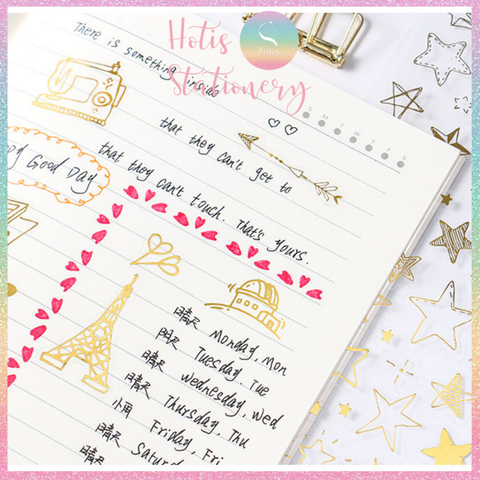 Hotis
Stationery
There is something inside
S M T W T F S
that they can't get to
Good Day
that they can't touch. That's yours.
晴天 Monday, Mon
Tuesday, Tue
晴天 Wednesday, Wed
晴天 Thursday, Thu
小雨 Friday, Fri
晴天